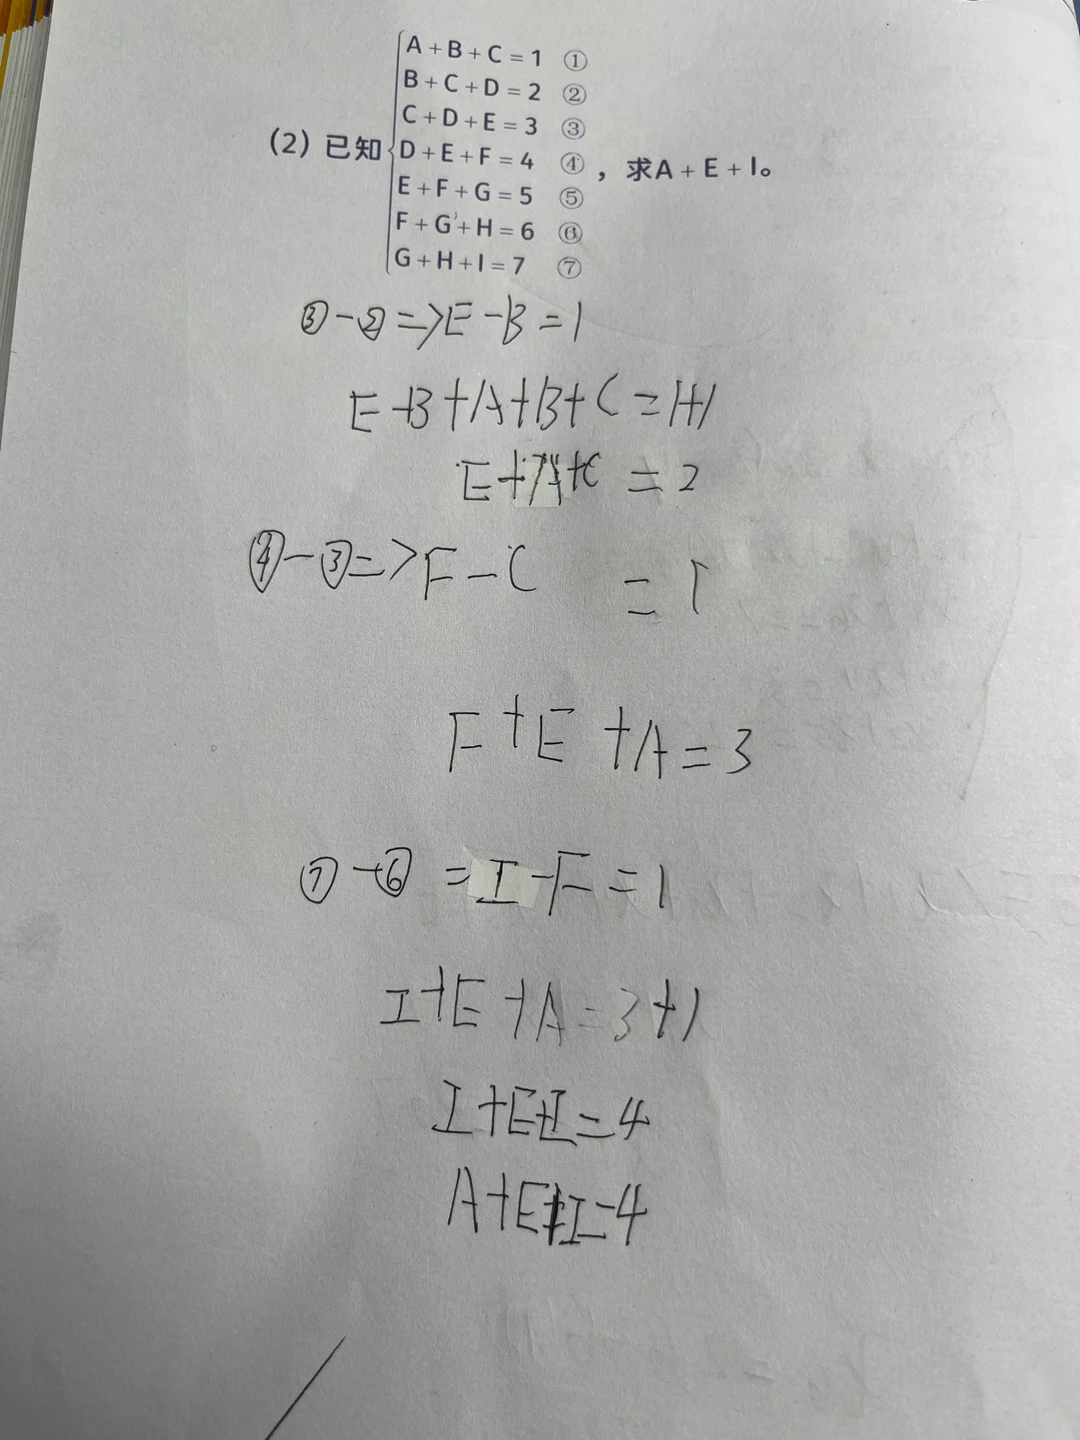 A+B+C=1 ①
B+C+D=2 ②
C+D+E=3 ③
(2) 已知 D+E+F=4 ④ ，求A+E+I。
E+F+G=5 ⑤
F+G+H=6 ⑥
G+H+I=7 ⑦
③-②=>E-B=1
E-B+A+B+C=1+1
E+A+C=2
④-③=>F-C=1
F+E+A=3
⑦-⑥=I-F=1
I+E+A=3+1
I+E+I=4
A+E+I=4